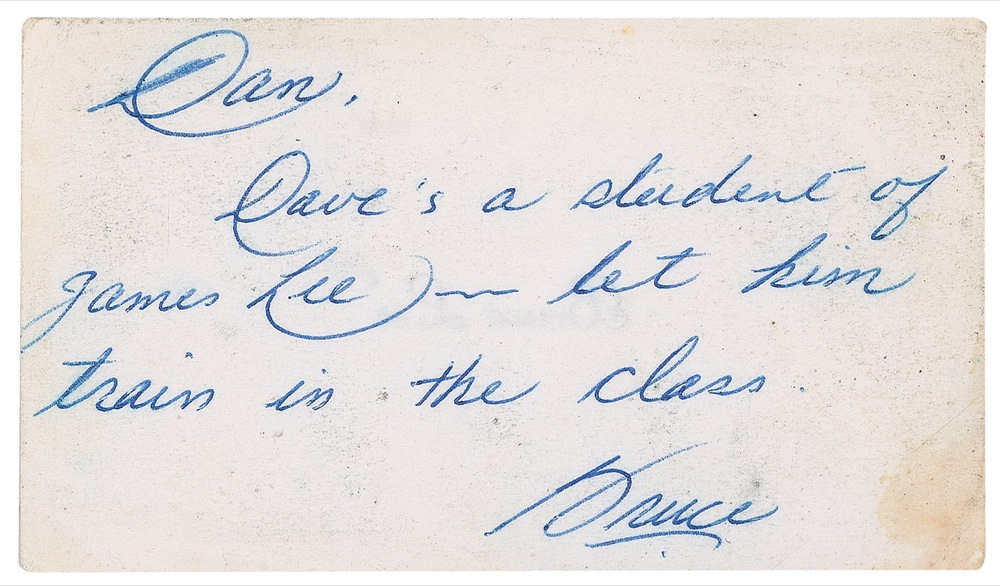 Dan,
Dave's a student of
James Lee — let him
train in the class.
Bruce